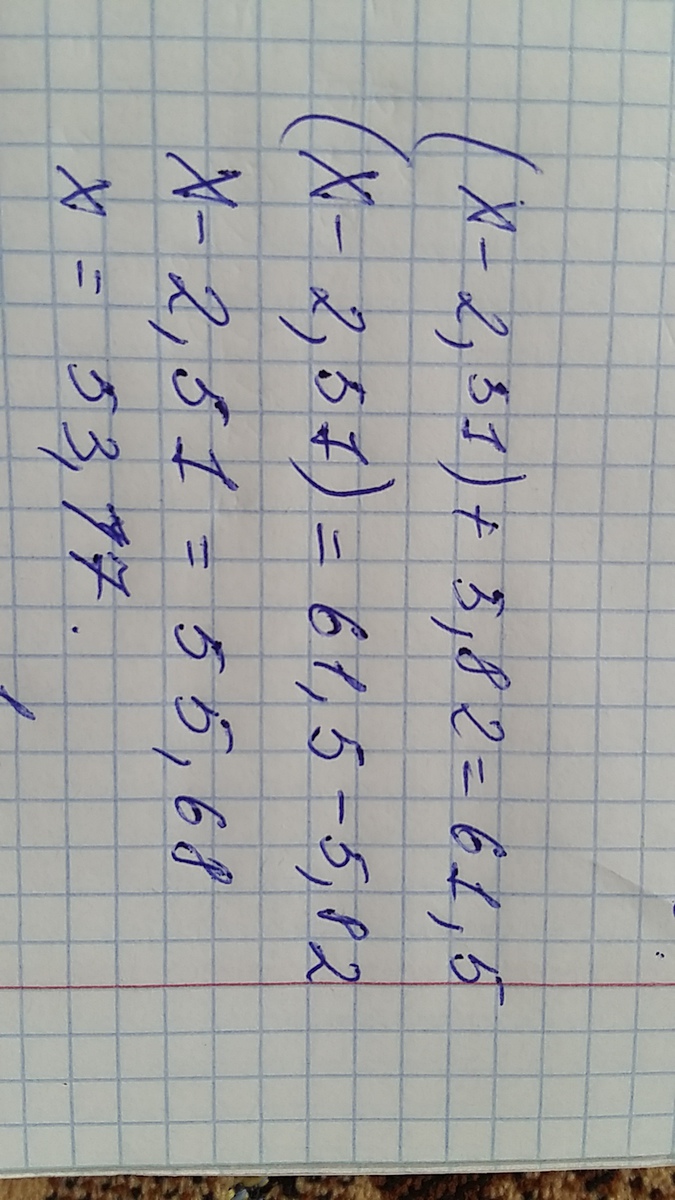 (x - 2,51) + 5,82 = 61,5
(x - 2,51) = 61,5 - 5,82
x - 2,51 = 55,68
x = 53,17.